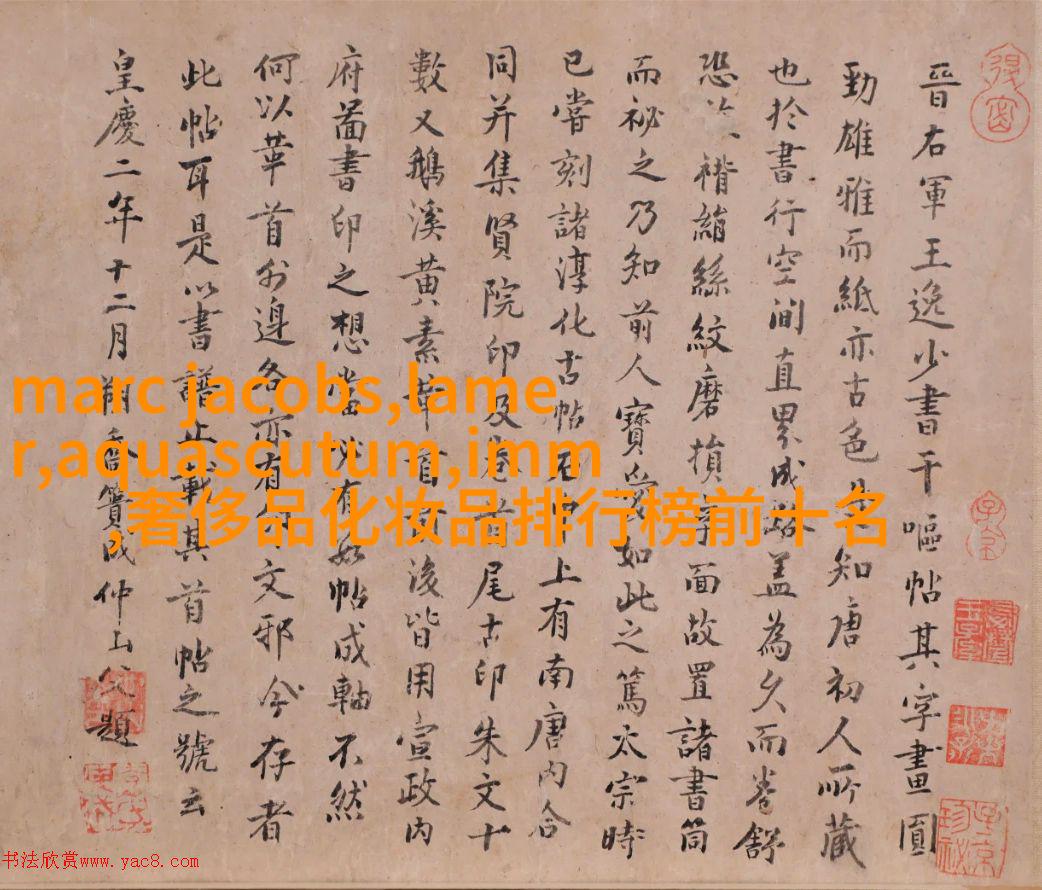 晉右軍王逸少書千嘔帖其字畫圓
勁雄雅而紙亦古色
知唐初人所藏
也於書行空間直界成
蓋為久而卷舒
恐
褙綃絲紋磨損
面故置諸書筒
而祕之乃知前人寶愛如此之篤太宗時
已嘗刻諸淳化古帖
上有南唐內合
同并集賢院印及
尾古印朱文十
數又鵝溪黃素
後皆用宣政內
府圖書印之想當
帖成軸不然
何以華首外邊各亦有
文邪今存者
此帖耳是以書譜止載其首帖之號云
皇慶二年十二月
仲山父題
marc jacobs,lame
r,aquascutum,imm
,奢侈品化妆品排行榜前十名
书法欣赏www.yac8.com